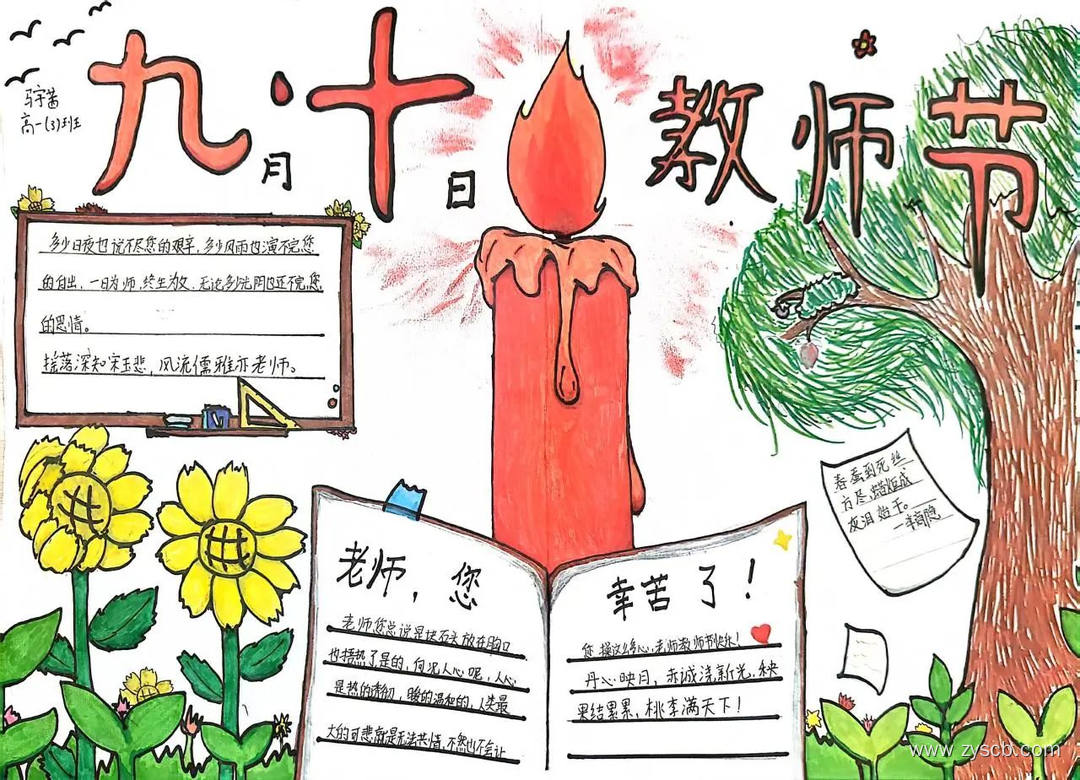 九·十
月
日
教师节
高一(3)班
多少日夜也说不尽您的艰辛，多少风雨也演不完您
的自出，一日为师，终生为父，无论多少光阴也还不完您
的恩情。
摇落深知宋玉悲，风流儒雅亦老师。
春蚕到死丝
方尽，蜡炬成
灰泪始干。
—李商隐
老师，您
老师您总说是块石头放在胸口
也捂热了是的，何况人心呢，人心
是热的，暖的温和的，人类最
大的可悲就是无法共情，不然也不会让
辛苦了！
您操这么多心，老师教师节快乐！
丹心映月，赤诚浇新光，秧
果结累累，桃李满天下！
www.zyscb.com